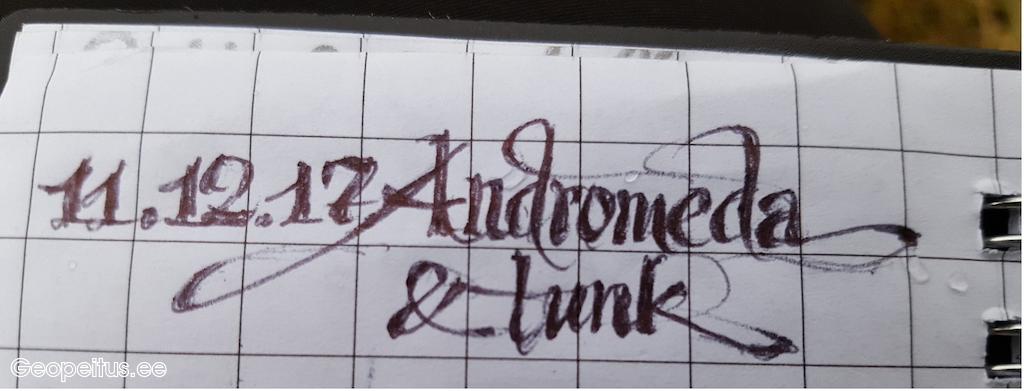 11.12.17 Andromeda
& tunk
Geopeitus.ee